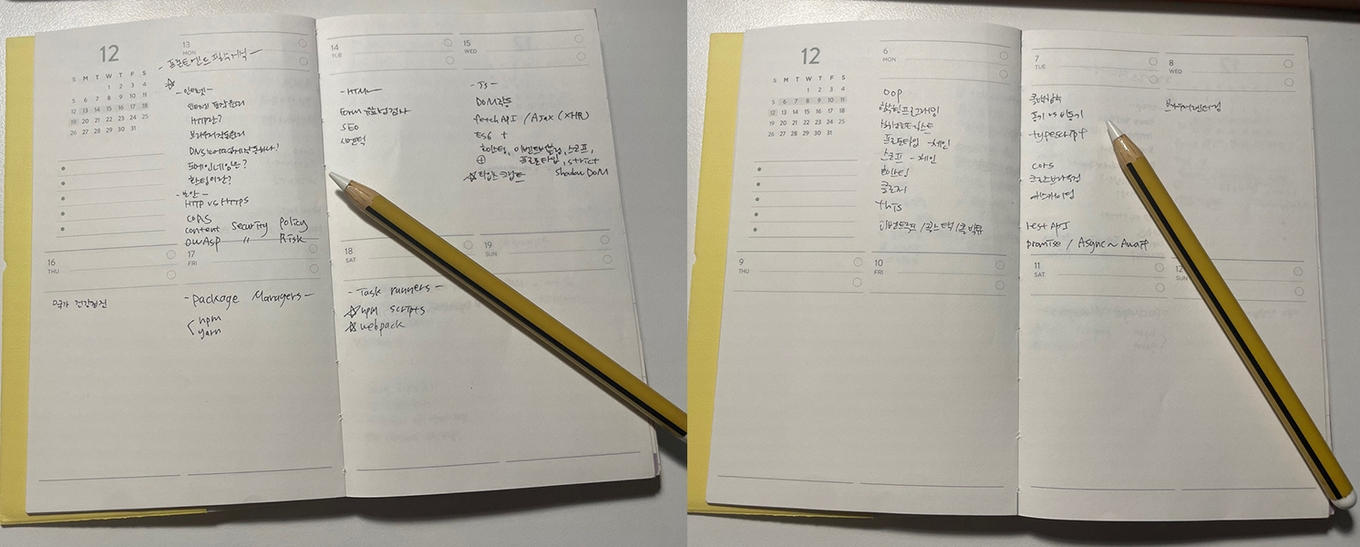 12
S M T W T F S
1 2 3 4
5 6 7 8 9 10 11
12 13 14 15 16 17 18
19 20 21 22 23 24 25
26 27 28 29 30 31
13
MON
- 프론트엔드 필수지식 -
- 인터넷 -
인터넷 동작원리
HTTP란?
브라우저 작동원리
DNS는 어떻게 작동하나?
도메인네임은?
호스팅이란?
- 보안 -
HTTP vs HTTPS
CORS
Content Security Policy
OWASP " Risk
14
TUE
- HTML -
Form 유효성검사
SEO
시맨틱
15
WED
- JS -
DOM작동
fetch API / Ajax (XHR)
ES6 +
호이스팅, 이벤트버블링, 스코프,
프로토타입, strict
타입스크립트 Shadow DOM
16
THU
국가 건강검진
17
FRI
- Package Managers -
npm
yarn
18
SAT
- Task runners -
npm scripts
webpack
19
SUN
12
S M T W T F S
1 2 3 4
5 6 7 8 9 10 11
12 13 14 15 16 17 18
19 20 21 22 23 24 25
26 27 28 29 30 31
6
MON
OOP
함수형프로그래밍
프로토타입 - 체인
스코프 - 체인
호이스팅
클로저
this
이벤트루프 / 콜스택 / 콜백큐
7
TUE
콜백함수
동기 vs 비동기
typescript
CORS
크로스브라우징
rest API
promise / Async ~ Await
8
WED
브라우저렌더링
9
THU
10
FRI
11
SAT
12
SUN